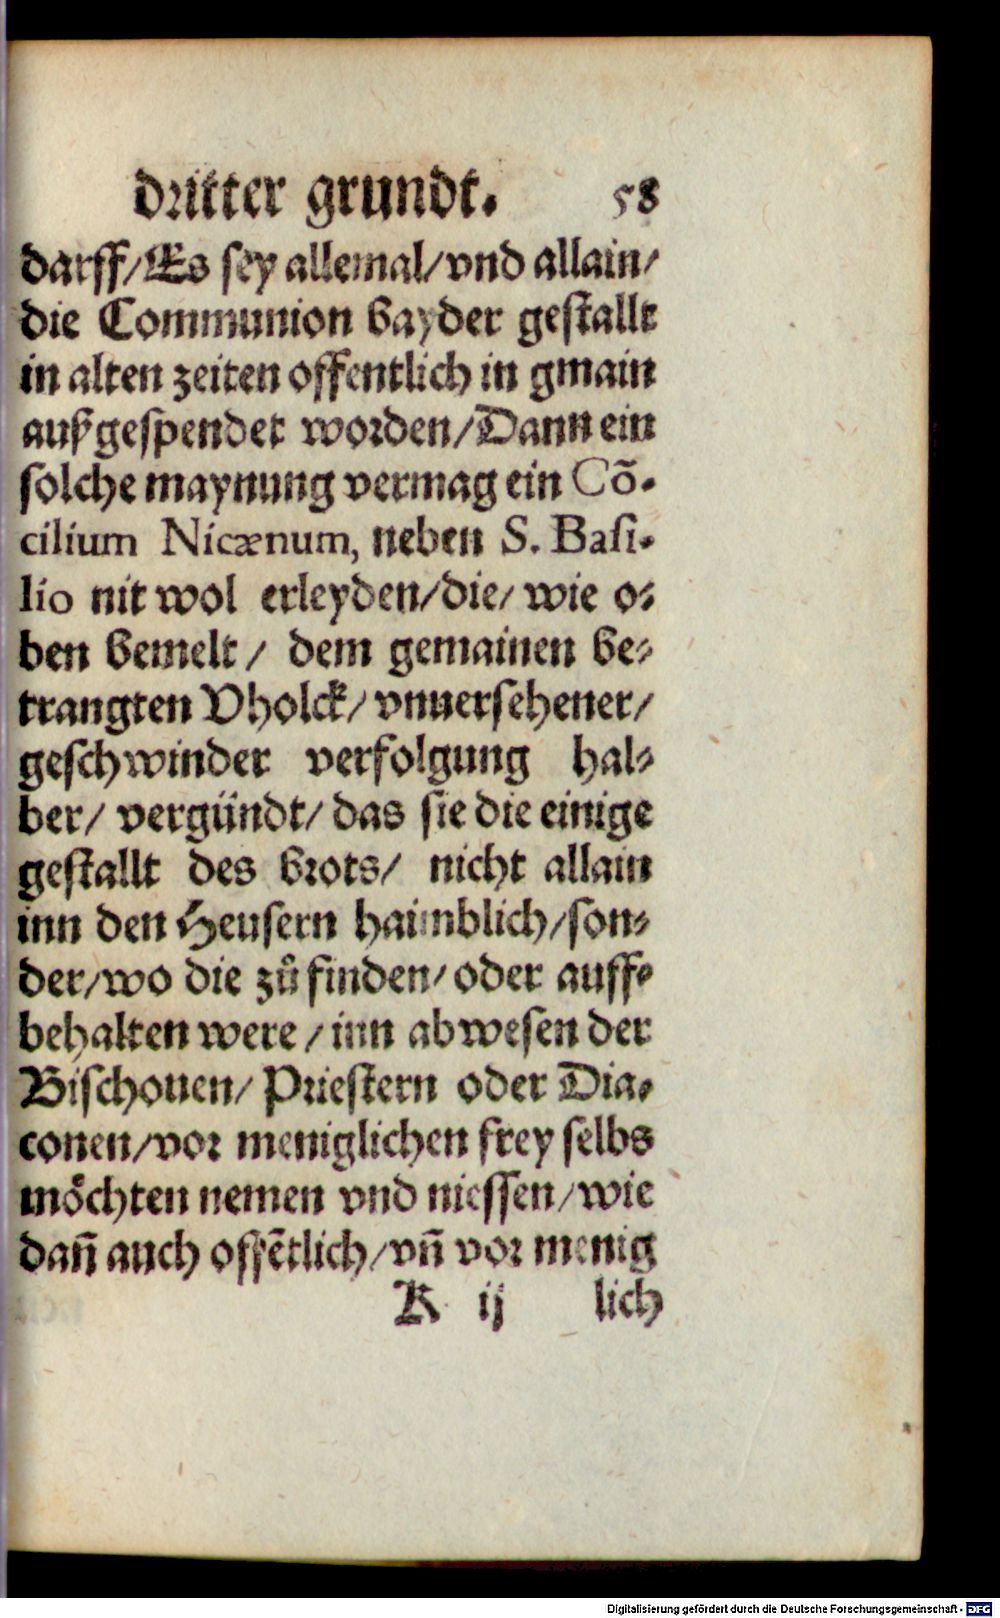 dritter grundt. 58
darff/Es sey allemal/vnd allain/
die Communion bayder gestallt
in alten zeiten offentlich in gmain
außgespendet worden/Dann ein
solche maynung vermag ein Cõ-
cilium Nicænum, neben S. Basi-
lio nit wol erleyden/die/wie o-
ben bemelt/ dem gemainen be-
trangten Vholck/vnuersehener/
geschwinder verfolgung hal-
ber/ vergündt/das sie die einige
gestallt des brots/ nicht allain
inn den Heusern haimblich/son-
der/wo die zů finden/oder auff-
behalten were/inn abwesen der
Bischouen/Priestern oder Dia-
conen/vor meniglichen frey selbs
möchten nemen vnd niessen/wie
dañ auch offẽtlich/vñ vor menig
K ij lich
Digitalisierung gefördert durch die Deutsche Forschungsgemeinschaft - DFG